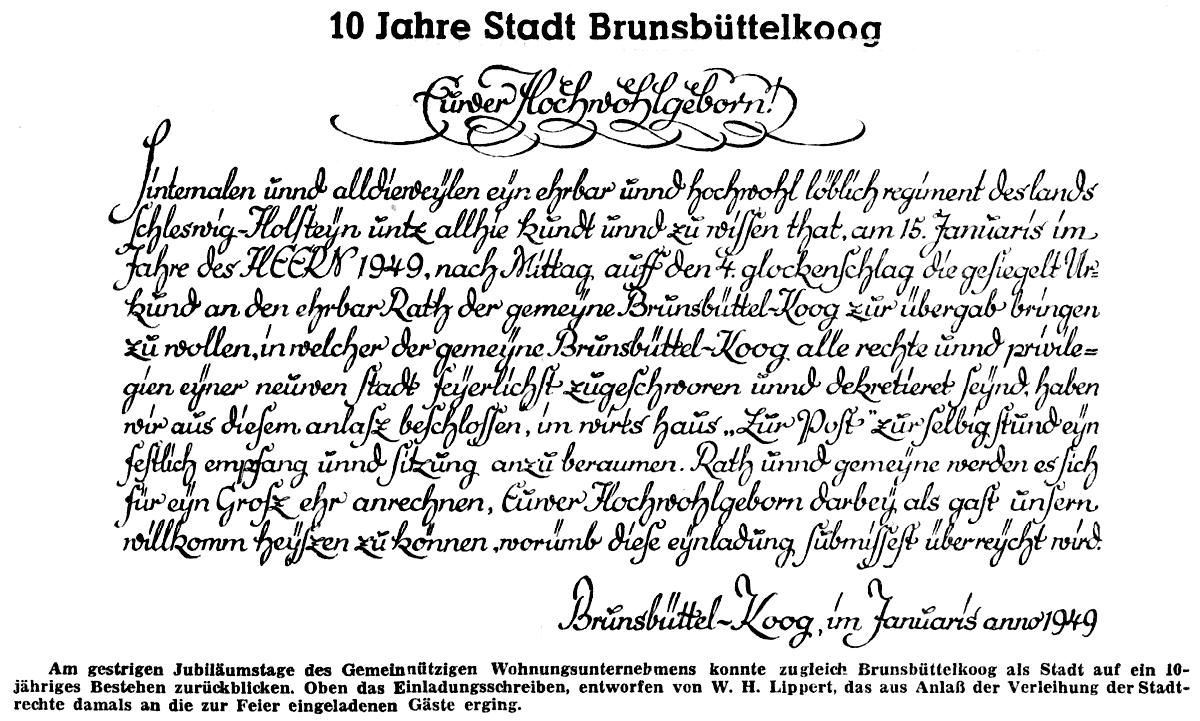 10 Jahre Stadt Brunsbüttelkoog
Euwer Hochwohlgeborn!
Sintemalen unnd alldieweylen eyn ehrbar unnd hochwohl löblich regiment des lands
Schleswig-Holsteyn untz allhie kundt unnd zu wissen that, am 15. Januaris im
Jahre des HEERN 1949, nach Mittag auff den 4. glockenschlag die gesiegelt Ur=
kund an den ehrbar Rath der gemeyne Brunsbüttel-Koog zur übergab bringen
zu wollen, in welcher der gemeyne Brunsbüttel-Koog alle rechte unnd privile=
gien eyner neuwen stadt feyerlichst zugeschworen unnd dekretieret seynd, haben
wir aus diesem anlasz beschlossen, im wirts haus „Zur Post" zur selbig stund eyn
festlich empfang unnd sitzung anzu beraumen. Rath unnd gemeyne werden es sich
für eyn Grosz ehr anrechnen, Euwer Hochwohlgeborn darbey als gast unsern
willkomm heyszen zu können, worumb diese eynladung submissest überreycht wird.
Brunsbüttel-Koog, im Januaris anno 1949
Am gestrigen Jubiläumstage des Gemeinnützigen Wohnungsunternehmens konnte zugleich Brunsbüttelkoog als Stadt auf ein 10-
jähriges Bestehen zurückblicken. Oben das Einladungsschreiben, entworfen von W. H. Lippert, das aus Anlaß der Verleihung der Stadt-
rechte damals an die zur Feier eingeladenen Gäste erging.